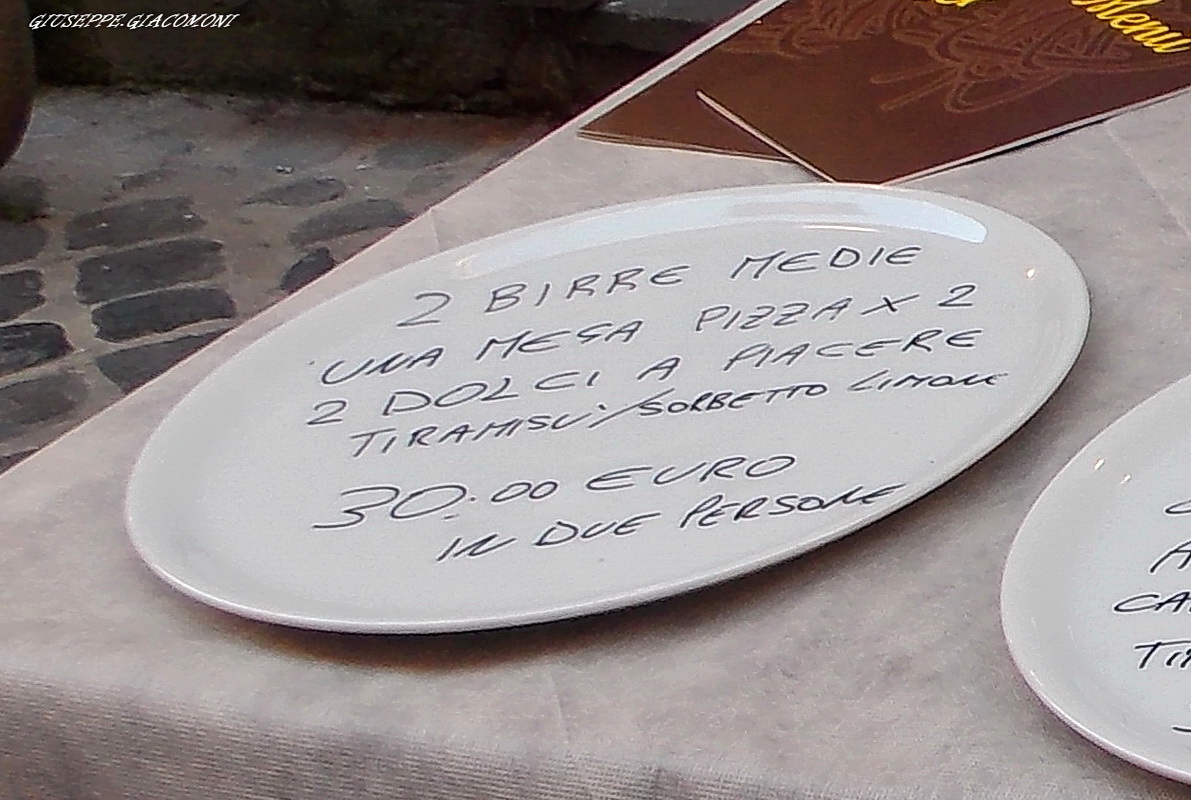 GIUSEPPE.GIACOMONI
Menu
2 BIRRE MEDIE
UNA MEGA PIZZA X 2
2 DOLCI A PIACERE
TIRAMISU'/SORBETTO LIMONE
30.00 EURO
IN DUE PERSONE